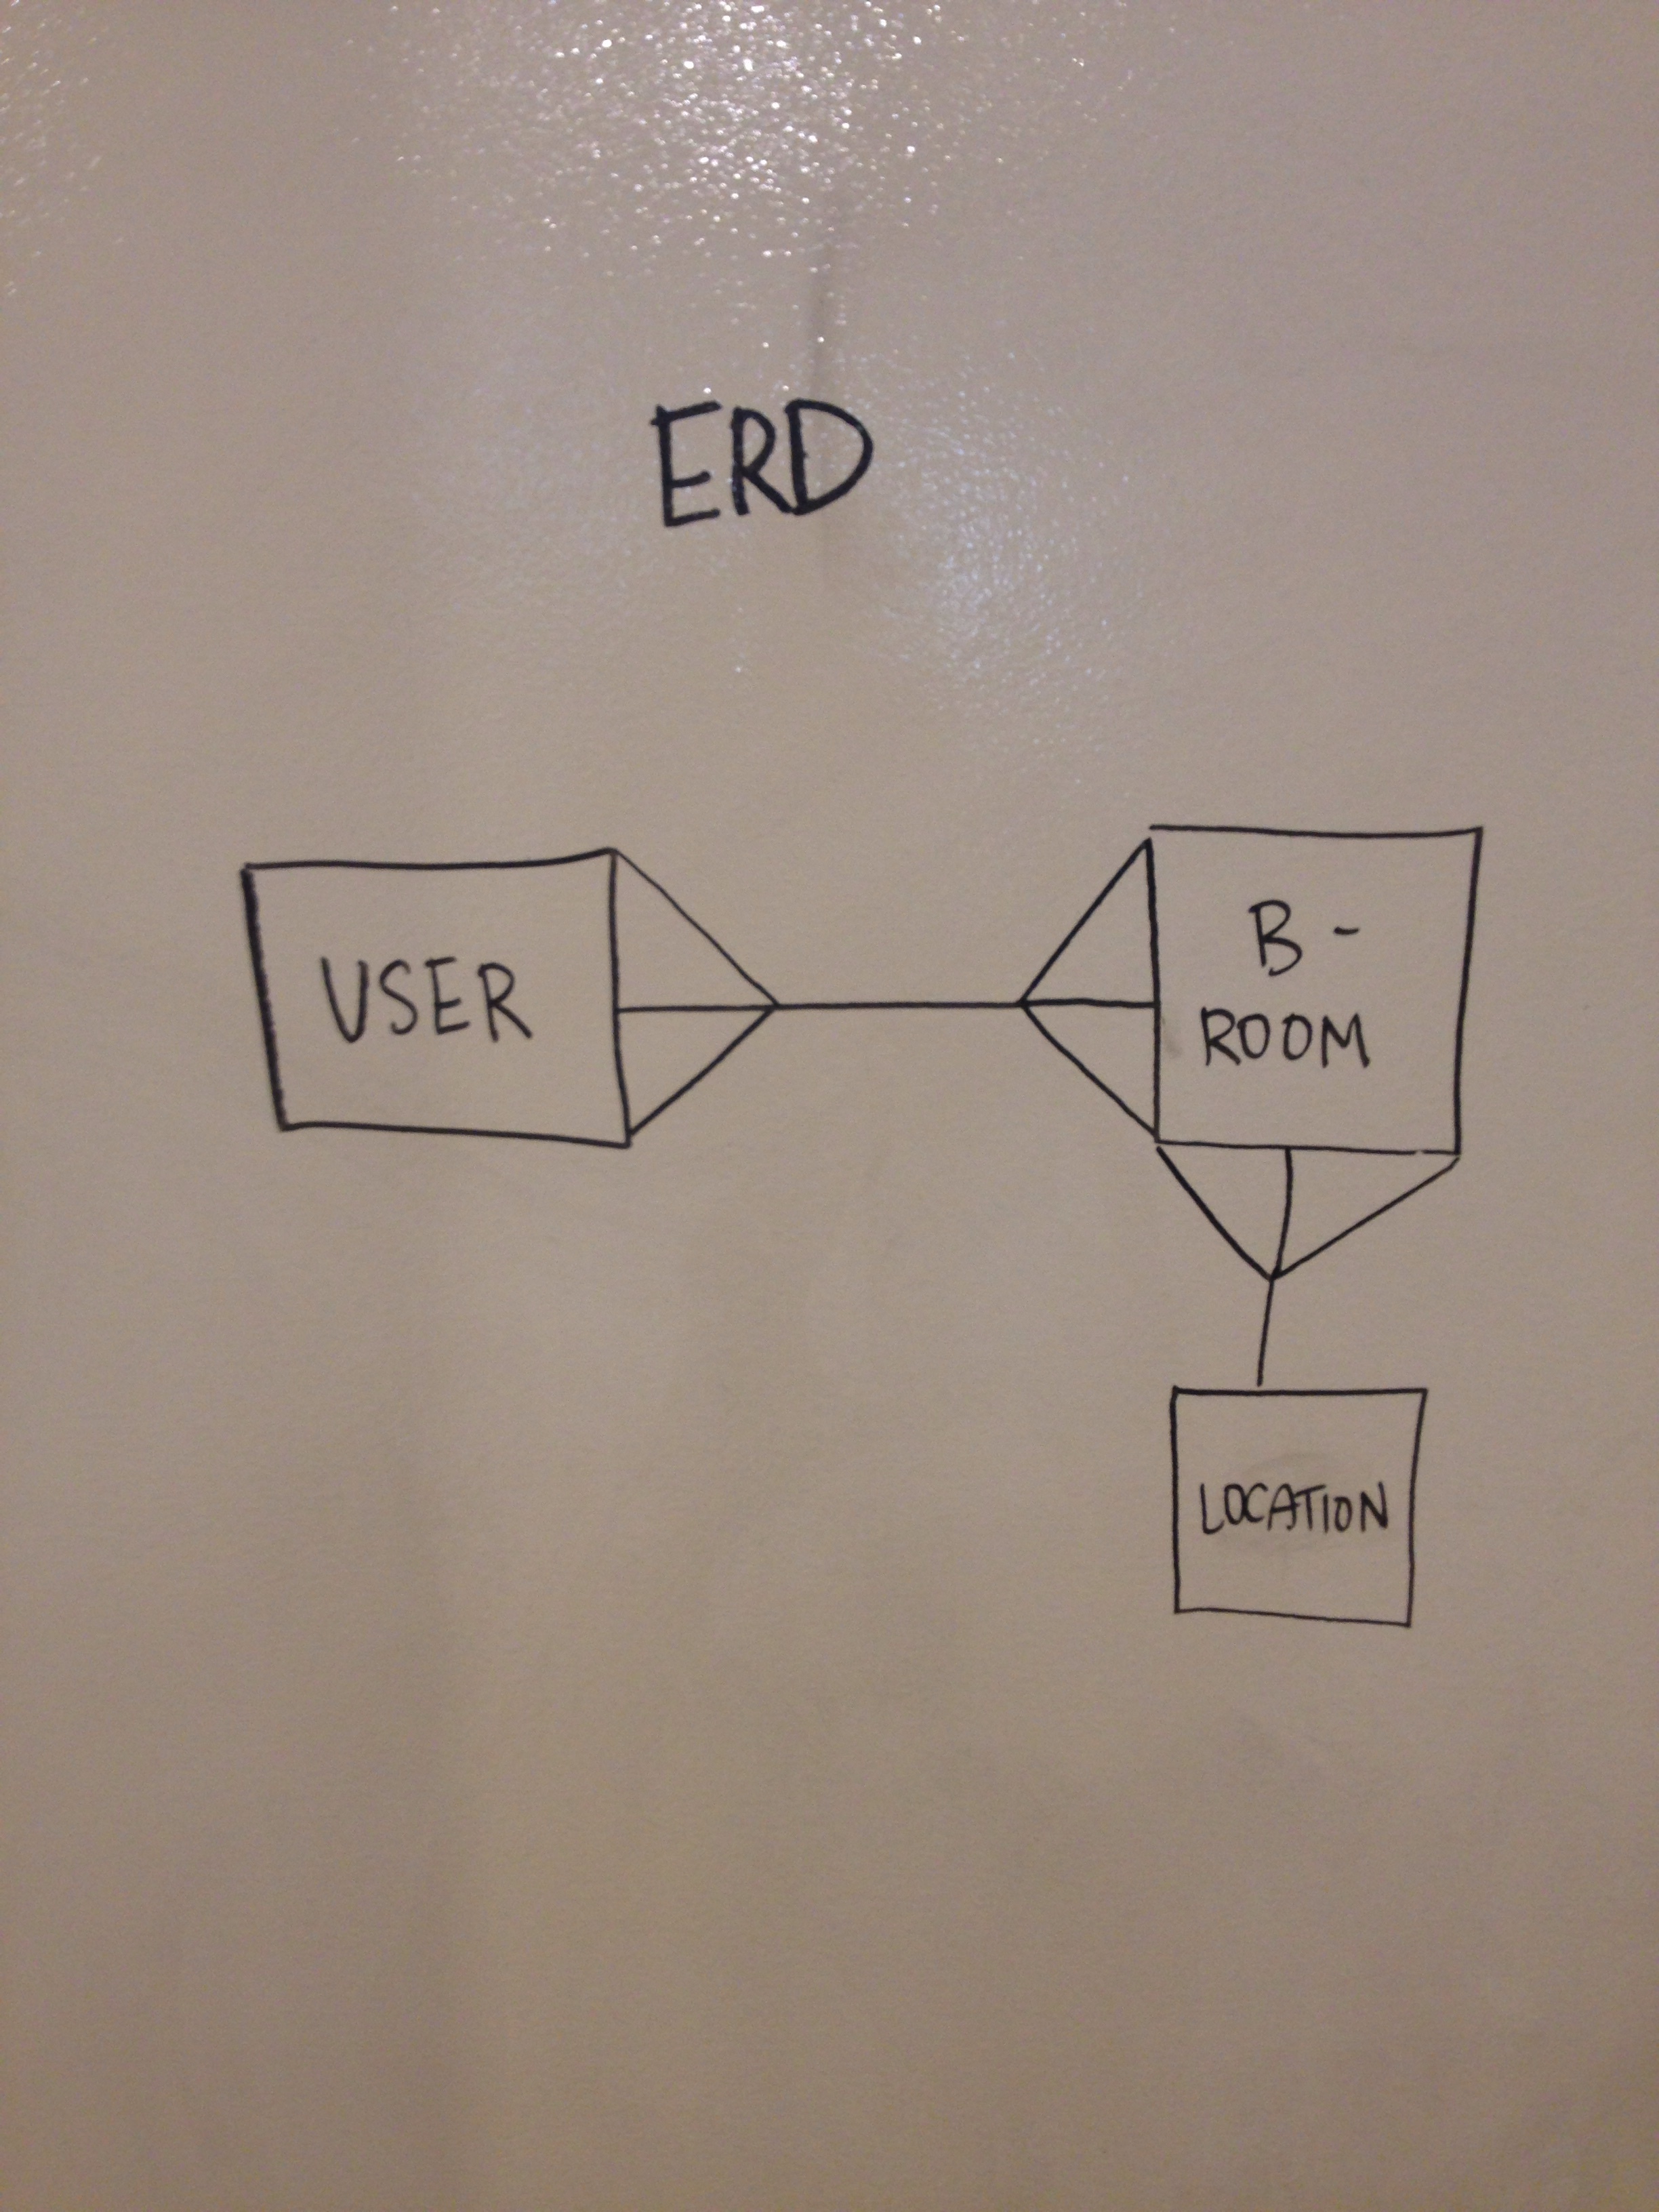 ERD
USER
B -
ROOM
LOCATION